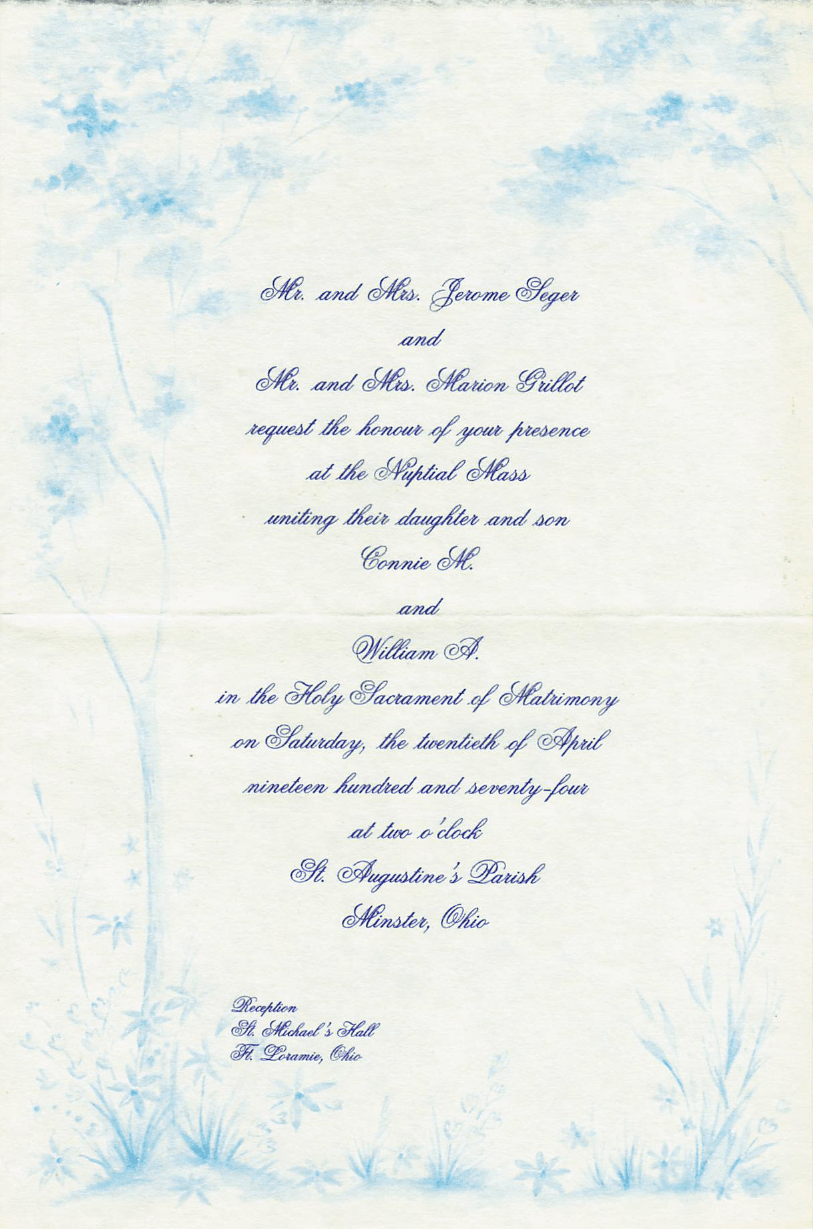 Mr. and Mrs. Jerome Seger
and
Mr. and Mrs. Marion Grillot
request the honour of your presence
at the Nuptial Mass
uniting their daughter and son
Connie M.
and
William A.
in the Holy Sacrament of Matrimony
on Saturday, the twentieth of April
nineteen hundred and seventy-four
at two o'clock
St. Augustine's Parish
Minster, Ohio
Reception
St. Michael's Hall
Ft. Loramie, Ohio